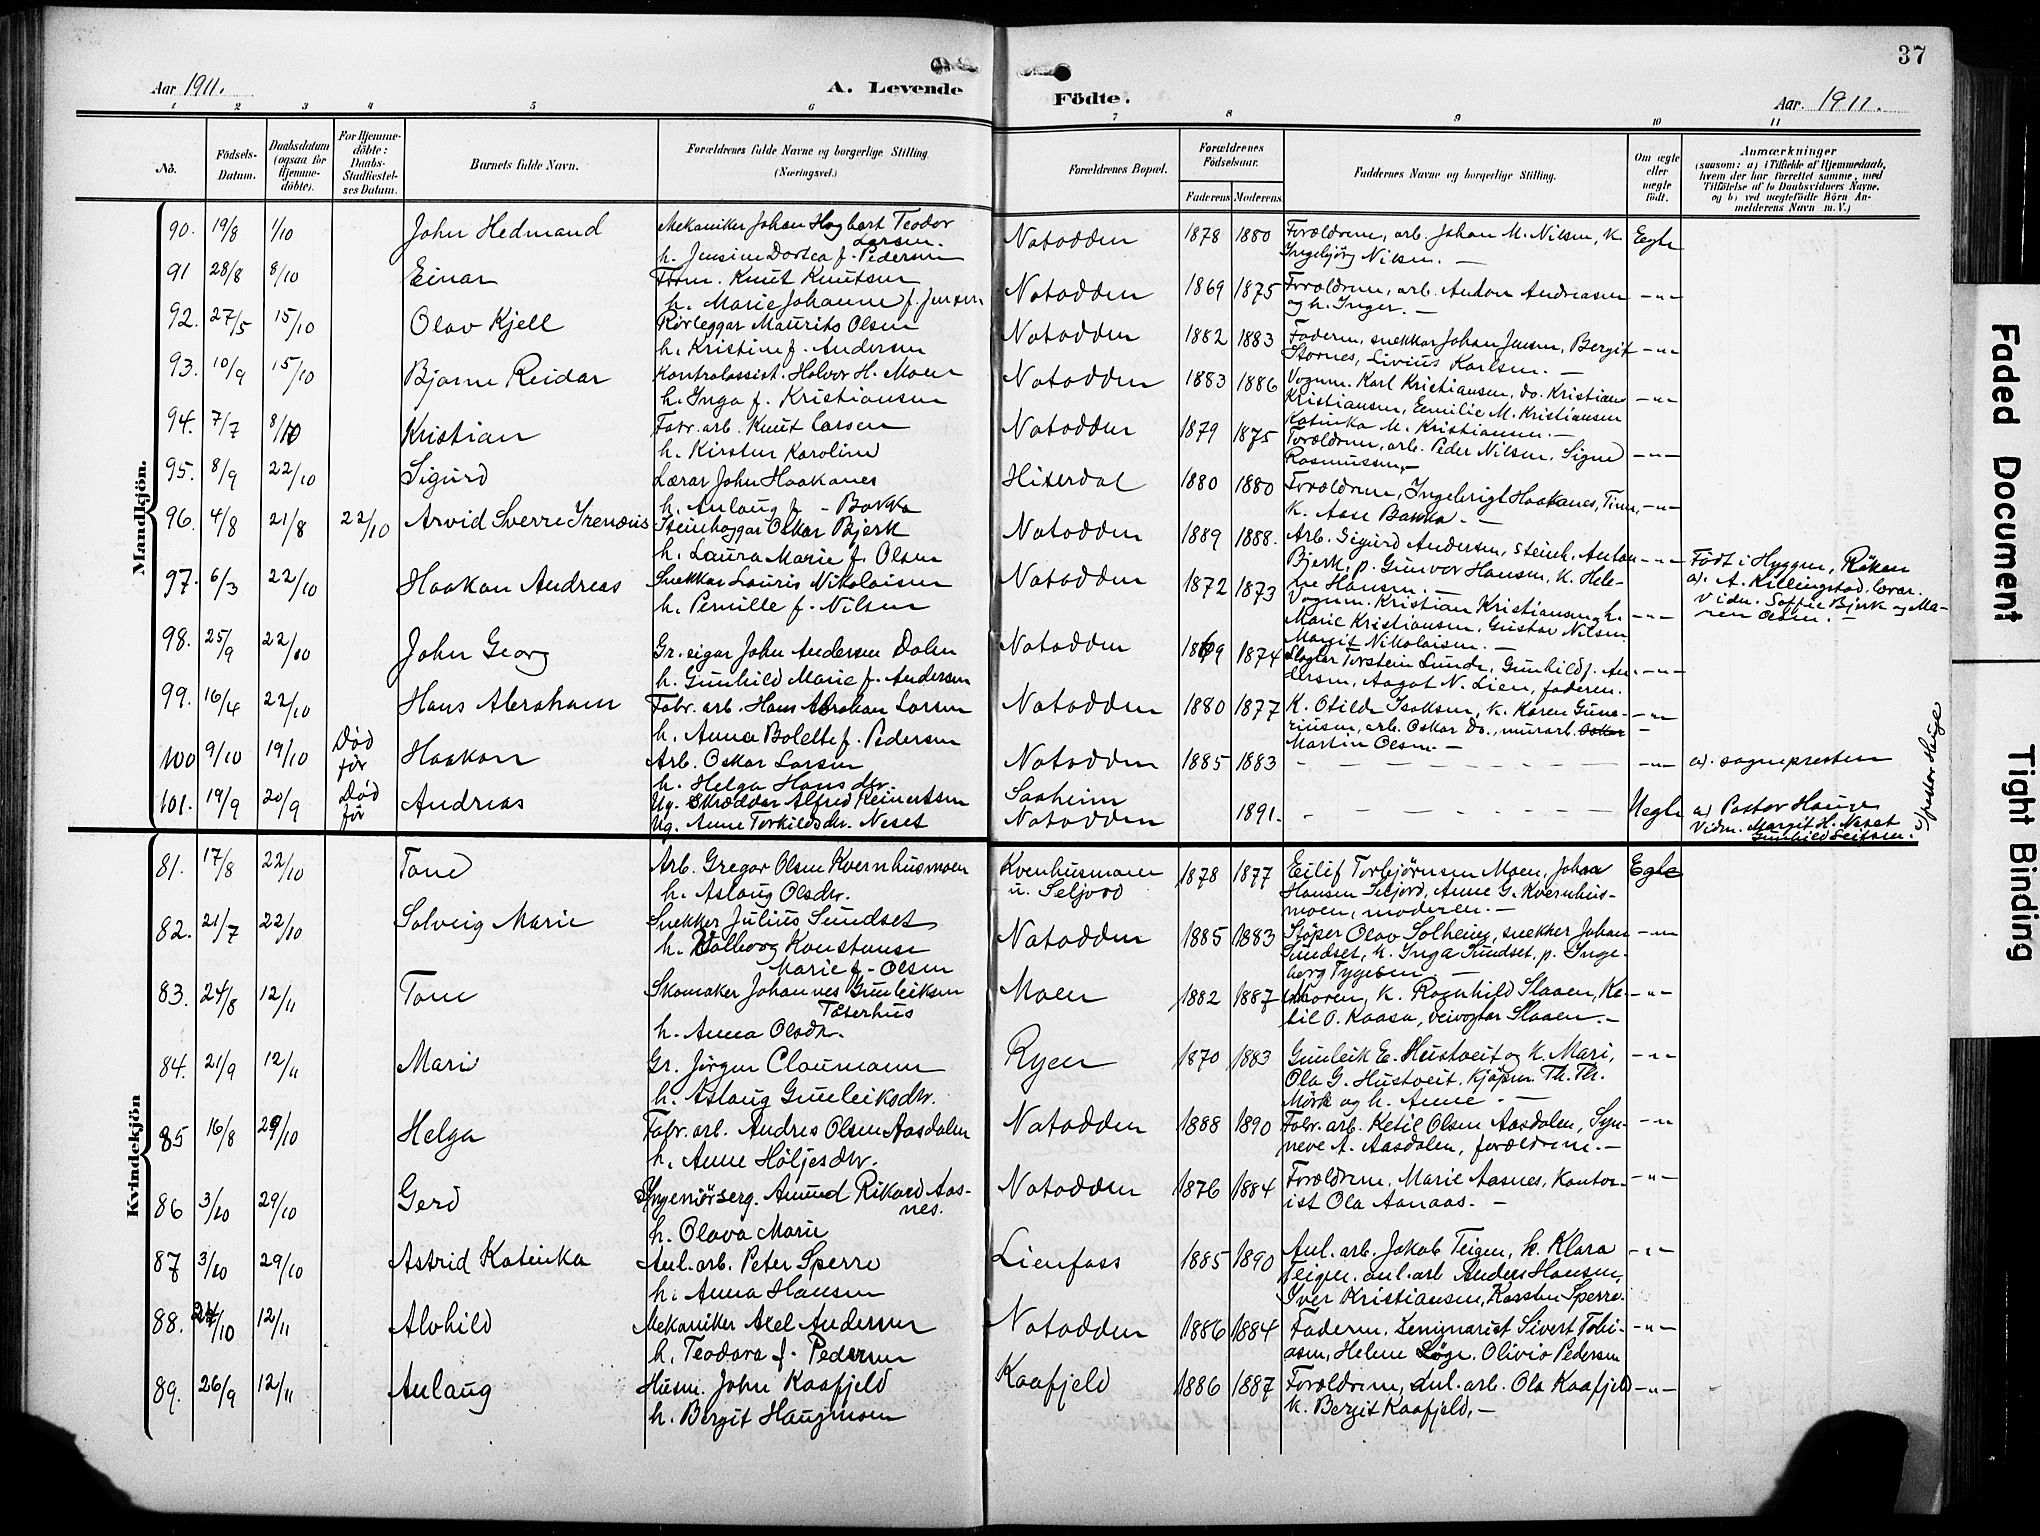 37
Aar 1911.
A. Levende
Födte.
Aar. 1911.
1 2 3 4 5 6 7 8 9 10 11
No.
Födsels-Datum.
Daabsdatum (ogsaa for Hjemme-döbte).
For Hjemme-döbte: Daabs-Stadfæstel-ses Datum.
Barnets fulde Navn.
Forældrenes fulde Navne og borgerlige Stilling (Næringsvei.)
Forældrenes Bopæl.
Forældrenes Födselsaar.
Faderens Moderens
Faddernes Navne og borgerlige Stilling.
Om ægte eller uægte födt.
Anmærkninger
(saasom: a) i Tilfælde af Hjemmedaab, hvem der har forrettet samme, med Tilföielse af to Daabsvidners Navne, og b) ved uægtefödte Börn An-melderens Navn m. V.)
Mandkjön.
90. 19/8 1/10 John Hedmand Mekaniker Johan Hagbart Teodor Larsen. h. Jensine Dortea f. Pedersen Notodden 1878 1880 Forældrene, arb. Johan M. Nilsen, k. Ingebjörg Nilsen. — Eegte
91 28/8 8/10 Einar Knut Knutsen h. Marie Johanne f. Jensen Notodden 1869 1875 Forældrene, arb. Anton Andreasen og h. Inger. — -"-
92. 27/5 15/10 Olav Kjell Rörleggar Maurits Olsen h. Kristine f. Andersen Notodden 1882 1883 Faderen, snekkar Johan Jensen, Bergit Stornes, Livius Karlsen. — -"-
93. 10/9 15/10 Bjarne Reidar Kontrolassist. Halvor H. Moen h. Inga f. Kristiansen Notodden 1883 1886 Vognm. Karl Kristiansen, do. Kristian Kristiansen, Eemilie M. Kristiansen Katinka M. Kristiansen. — -"-
94. 7/7 8/10 Kristian Fabr. arb. Knut Larsen h. Kirsten Karoline Notodden 1879 1875 Forældrene, arb. Peder Nilsen, Signe Rasmussen, — -"-
95. 8/9 22/10 Sigurd Lærar John Haakanes h. Anlaug f. Bakka Hiterdal 1880 1880 Forældrene, Ingebrigt Haakanes, Tinn, k. Aase Bakka. — -"-
96. 4/8 21/8 22/10 Arvid Sverre Irenæus Steinhoggar Oskar Bjerk h. Laura Marie f. Olsen Notodden 1889 1888. Arb. Sigurd Andersen, steinh. Anton Bjerk, p. Gunvor Hansen, k. Hele-ne Hansen. — -"- Födt i Hyggen, Röken a). A. Killingstad, lærar. Vidn. Soffie Bjerk og Ma-ren Olsen. —
97. 6/3 22/10 Haakon Andreas Snekkar Lauris Nikolaisen h. Pernille f. Nilsen Notodden 1872 1873 Vognm. Kristian Kristiansen, h. Marie Kristiansen, Gustav Nilsen Margit Nikolaisen. — -"-
98. 25/9 22/10 John Georg Gr. eigar John Andersen Dalen h. Gunhild Marie f. Andersen Notodden 1869 1874 Slagtar Torstein Lunde, Gunhild f. An-dersen, Aagot N. Lien, faderen. -"-
99. 16/4 22/10 Hans Abraham Fabr. arb. Hans Abrahan Larsen h. Anna Bolette f. Pedersen Notodden 1880 1877 K. Otilde Isaksen, k. Karen Guna-riusen, arb. Oskar do., murarb. Oskar Martin Olsen. — -"-
100 9/10 19/10 Död för Haakon Arb. Oskar Larsen h. Helga Hansdtr. Notodden 1885 1883 -"- a). sogneprestem
101. 19/9 20/9 Död för Andreas Ug. Skræddar Alfred Reinertsen Ug. Anne Torkildsdtr. Neset Saaheim Notodden 1891. Uegte a) Pastor Hauge Vidn. Margit H. Neset Gunhild Leifsen.
pastor Hauge
Kvindekjön
81. 17/8 22/10 Tone Arb. Gregar Olsen Kvernhusmoen h. Aslaug Olsdtr. Kvenhusmoen u. Seljord 1878 1877 Eilif Torbjörnsen Moen, Johan Hansen Seljord, Anne G. Kvernhus-moen, moderen. — Egte
82. 21/7 22/10 Solveig Marie Snekker Julius Sundset h. Valborg Konstanse Marie f. Olsen Notodden 1885 1883 Støper Olav Solheim, snekker Johan Sundset, k. Inga Sundset, p. Inge-borg Tygesen — -"-
83. 24/8 12/11 Tone Skomaker Johannes Gunleiksen Täterhus h. Anna Olsdtr. Moen 1882 1887 Moren, k. Ragnhild Slaaen, Ke-til O. Kaasa, veivogtar Slaaen. — -"-
84. 21/9 12/11 Mari Gr. Jörgen Claumann h. Aslaug Gunleiksdtr. Ryen 1870 1883 Gunleik E. Hustveit og k. Mari, Ola G. Hustveit, Kjöpm. Th. Th. Mörk og h. Anne. — -"-
85 16/8 29/10 Helga Fabr. arb. Andres Olsen Aasdalen h. Anne Höljesdtr. Notodden 1888 1890 Fabr. arb. Ketil Olsen Aasdalen, Syn-neve A. Aasdalen, forældrene. — -"-
86 3/10 29/10 Gerd Ingeniörserg. Amund Rikard Aas-nes. h. Olava Marie Notodden 1876 1884 Forældrene, Marie Aasnes, Kontor-ist Ola Aanaas. — -"-
87 3/10 29/10 Astrid Katinka Anl. arb. Peter Sperre h. Anna Hansen Lienfoss 1885 1890 Anl. arb. Jakob Teigen, k. Klara Teigen, anl. arb Anders Hansen, Iver Kristiansen, Karsten Sperre. -"-
88. 24/10 12/11 Alvhild Mekaniker Axel Andersen h. Teodora f. Pedersen Notodden 1886 1884 Faderen, Sivert Tobi-asen, Helene Løge, Olivia Pedersen -"-
89. 26/9 12/11 Anlaug Husm. John Kaafjeld h. Bergit Haugmoen Kaafjeld 1886 1887 Forældrene, Anl. arb. Ola Kaafjeld k. Bergit Kaafjeld, — -"-
Faded Document
Tight Binding